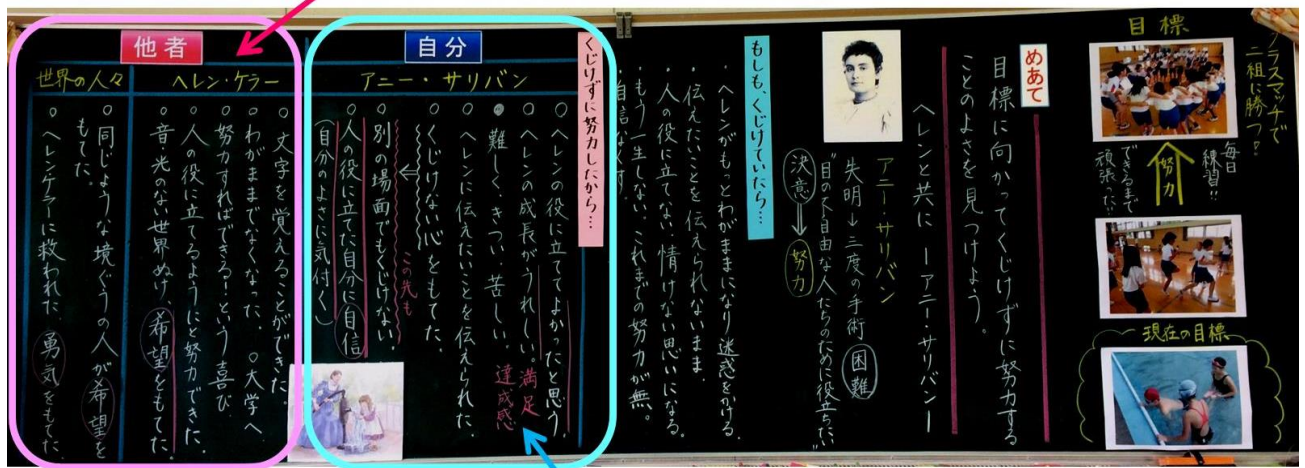 目標
クラスマッチで
二組に勝つ!
毎日
練習!!
できるまで
頑張った!!
努力
現在の目標
めあて
目標に向かってくじけずに努力する
ことのよさを見つけよう。
ヘレンと共に ーアニー・サリバンー
アニー・サリバン
失明→三度の手術 困難
"目の不自由な人たちのために役立ちたい"
決意⇒努力
もしも、くじけていたら…
・ヘレンがもっとわがままになり迷惑をかける
・伝えたいことを伝えられないまま、
・人の役に立てない、情けない思いになる。
・もう一生しない、これまでの努力が無。
・自信なくす。
くじけずに努力したから…
自分
アニー・サリバン
○ヘレンの役に立ててよかったと思う。
○ヘレンの成長がうれしい。満足
達成感
難しく、きつい、苦しい。
○ヘレンに伝えたいことを伝えられた。
○くじけない心をもてた。
この先も
別の場面でもくじけない。
○人の役に立てた自分に自信
(自分のよさに気付く)
他者
ヘレン・ケラー
○文字を覚えることができた。
○わがままでなくなった。 ○大学へ
○努力すればできる!という喜び
○人の役に立てるようにと努力できた。
○音、光のない世界ぬけ、希望をもてた。
世界の人々
○同じような境ぐうの人が希望を
もてた。
○ヘレンケラーに救われた、勇気をもてた。